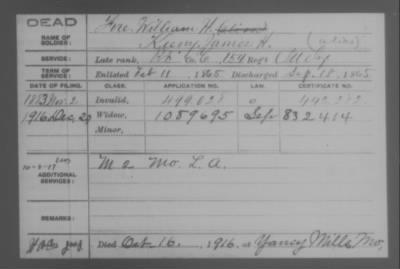 DEAD
NAME OF SOLDIER:
Fore William H. (alias)
Kemp, James H. (alias)
SERVICE:
Late rank, Pvt Co. G, 154 Regt Ill Inf
TERM OF SERVICE:
Enlisted Feb 11, 1865 Discharged Sep. 18, 1865
DATE OF FILING. CLASS. APPLICATION NO. LAW. CERTIFICATE NO.
Nov. 2 Invalid,
1916 Dec. 20 Widow, 1089695 Sep 832414
Minor,
ADDITIONAL SERVICES:
M 2 Mo. L. A.
REMARKS:
Died Oct. 16, 1916, at Yancy Mills Mo.